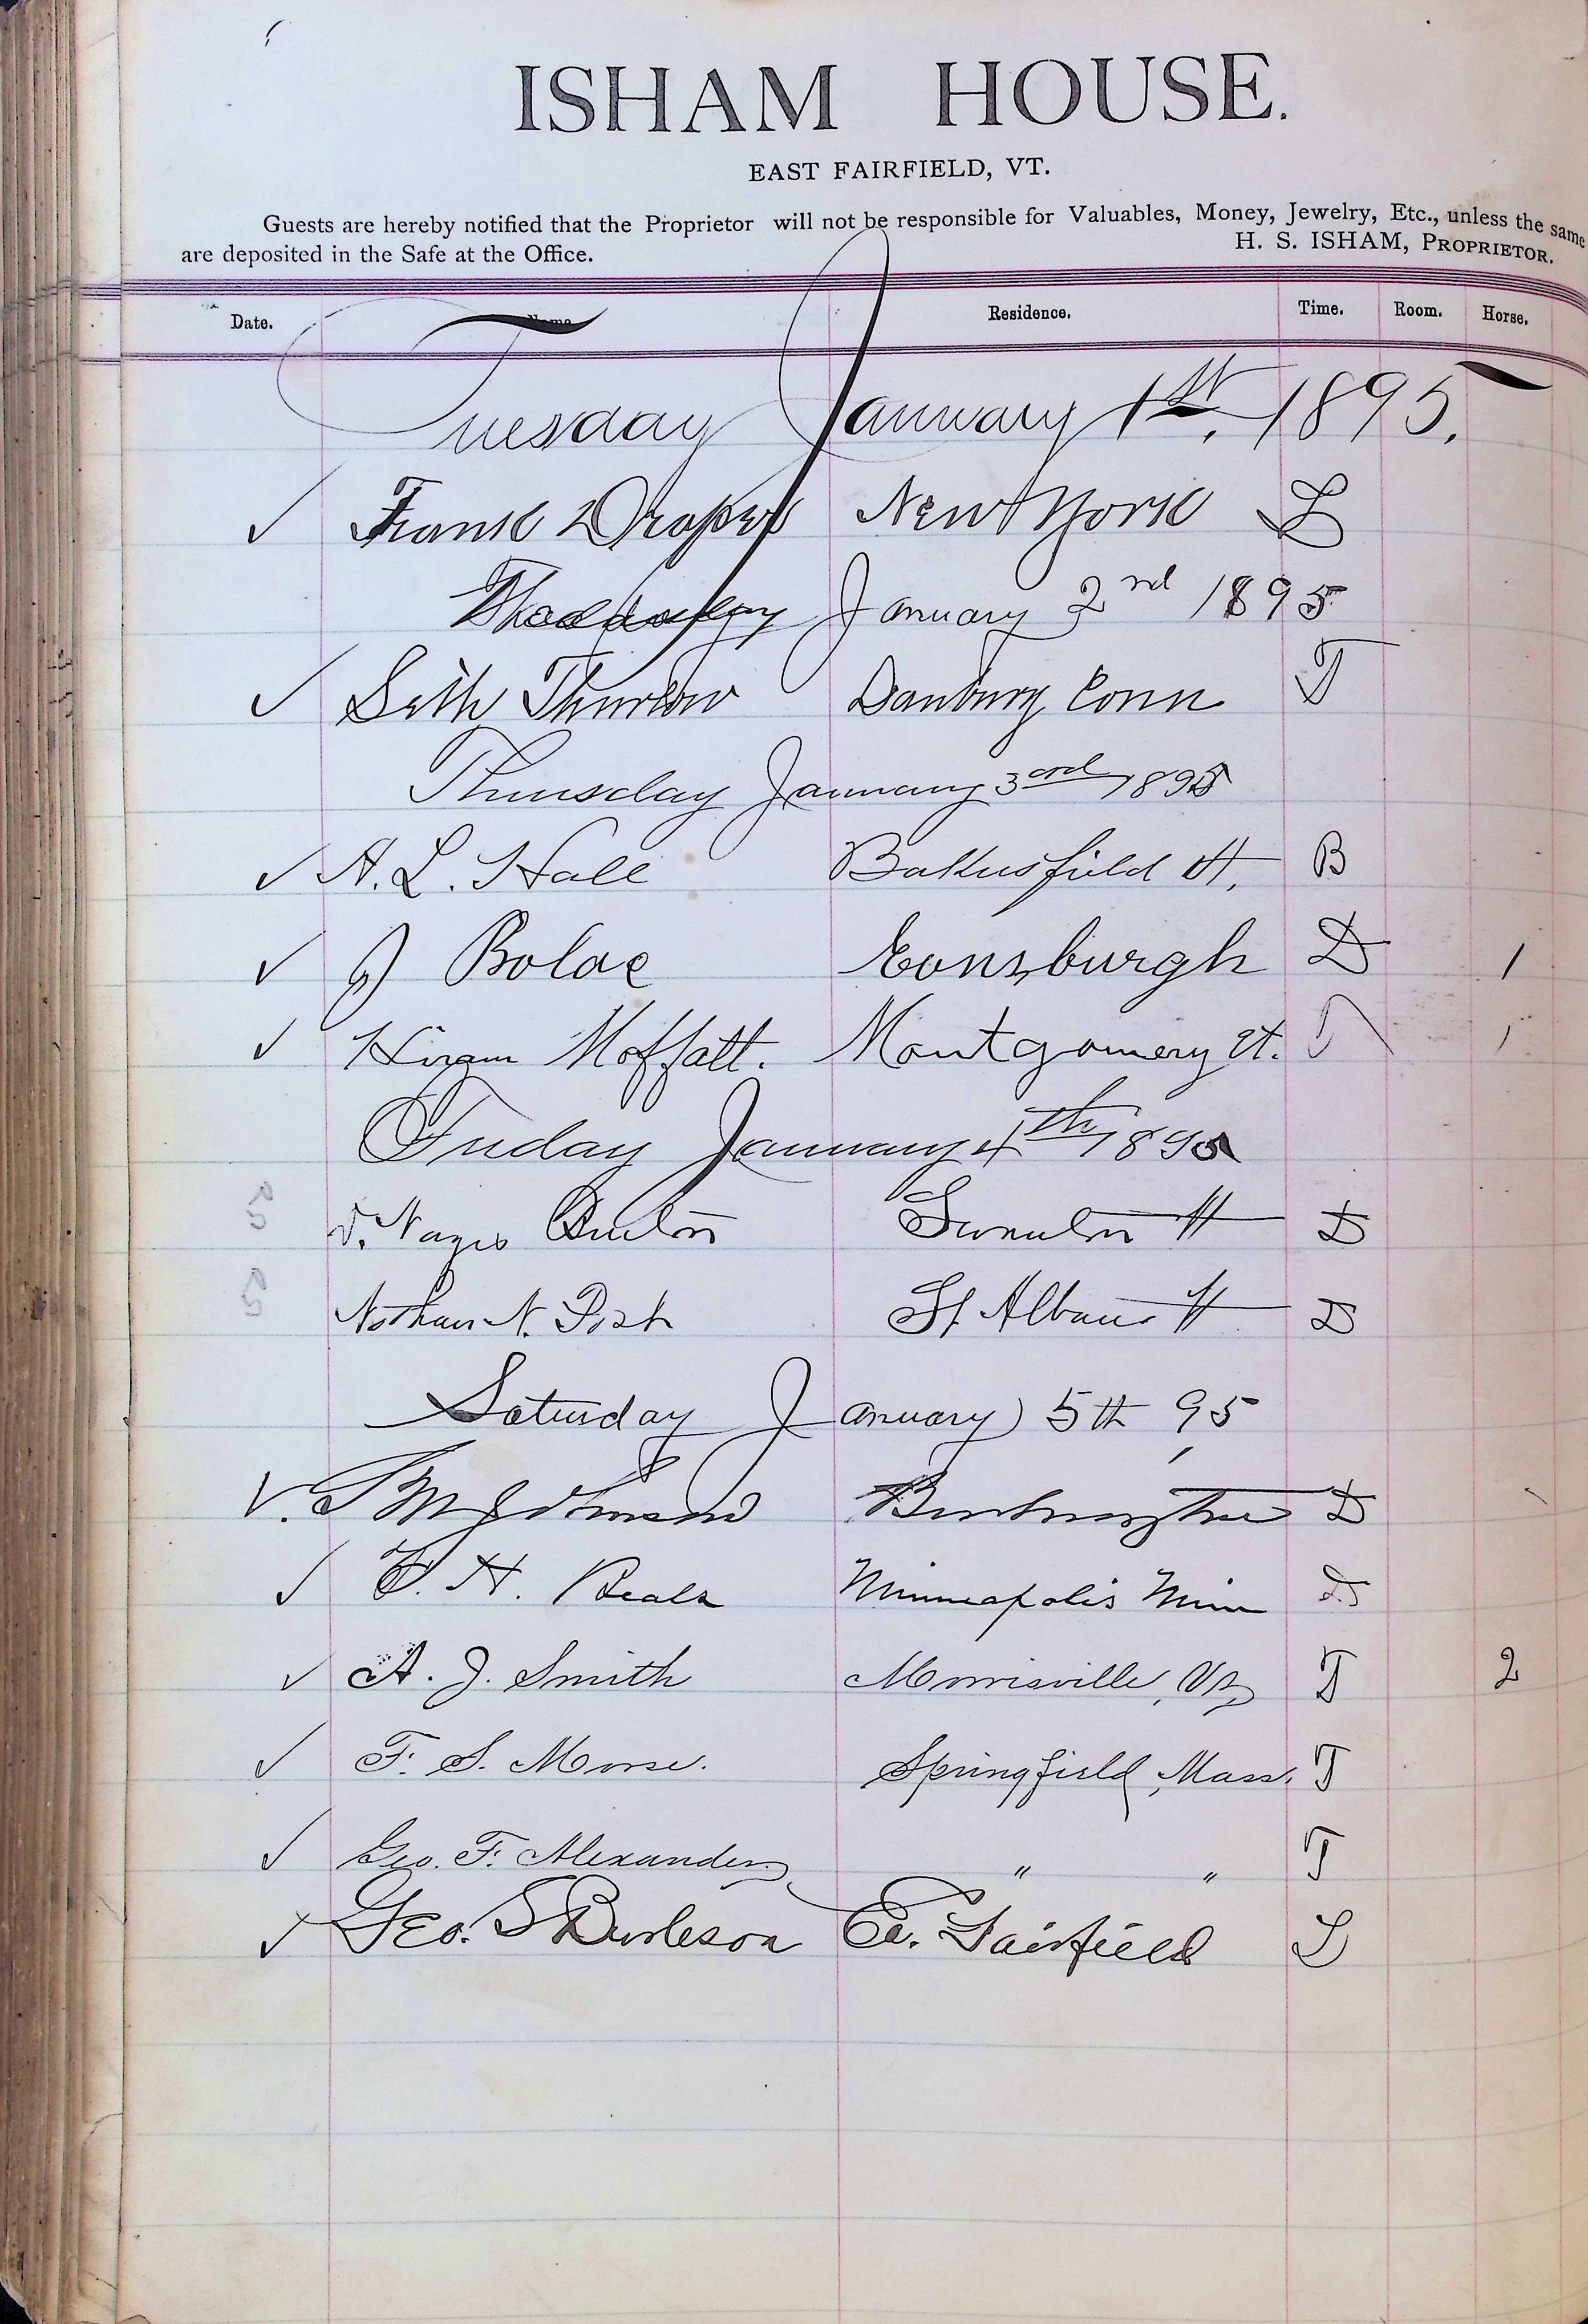 ISHAM HOUSE.
EAST FAIRFIELD, VT.
Guests are hereby notified that the Proprietor will not be responsible for Valuables, Money, Jewelry, Etc., unless the same
are deposited in the Safe at the Office.
H. S. ISHAM, PROPRIETOR.
Date. Name Residence. Time. Room. Horse.
Tuesday January 1st, 1895.
✓ Frank Draper New York L
January 2nd 1895
✓ Seth Thurlow Danbury Conn T
Thursday January 3rd 1895
✓ A. L. Hall Bakersfield Vt, B
✓ J Bolac Eonsburgh D 1
✓ Hiram Moffatt. Montgomery Vt. 1
Friday January 4th 1895
Swanton Vt D
Nathan N. Post St Albans Vt D
Saturday January 5th 95
✓. Burlington D
✓ H. Beals Minneapolis Minn D
✓ A. J. Smith Morrisville, Vt, T 2
✓ F. S. Morse. Springfield, Mass. T
✓ Geo. F. Alexander " " T
✓ Geo. S Burleson Ea. Fairfield L